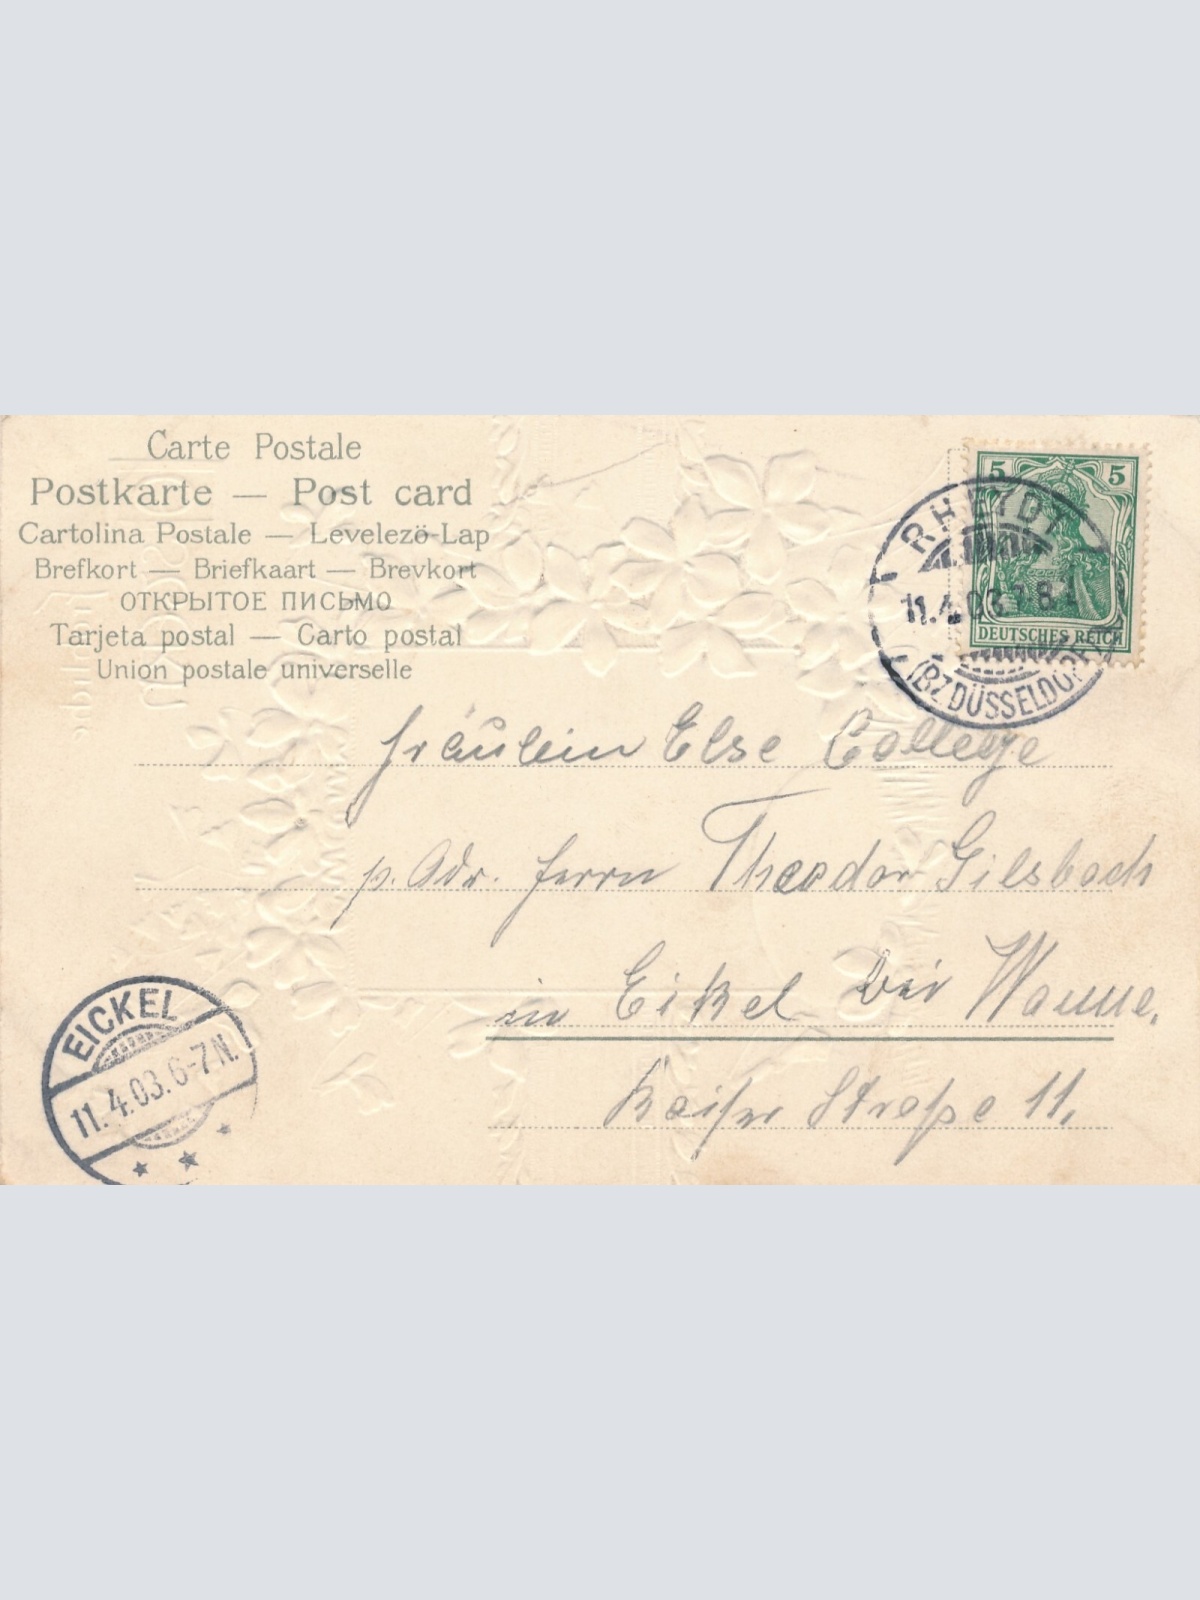 Carte Postale
Postkarte — Post card
Cartolina Postale — Levelező-Lap
Brefkort — Briefkaart — Brevkort
ОТКРЫТОЕ ПИСЬМО
Tarjeta postal — Carto postal
Union postale universelle
5 5
DEUTSCHES REICH
RHEYDT
11.4.03
(BZ DÜSSELDORF)
Fräulein Else
p. Adr. Herrn Theodor Gilsbach
in Eikel bei Wanne.
Kaiser Straße 11.
EICKEL
11.4.03. 6-7.N.
* *